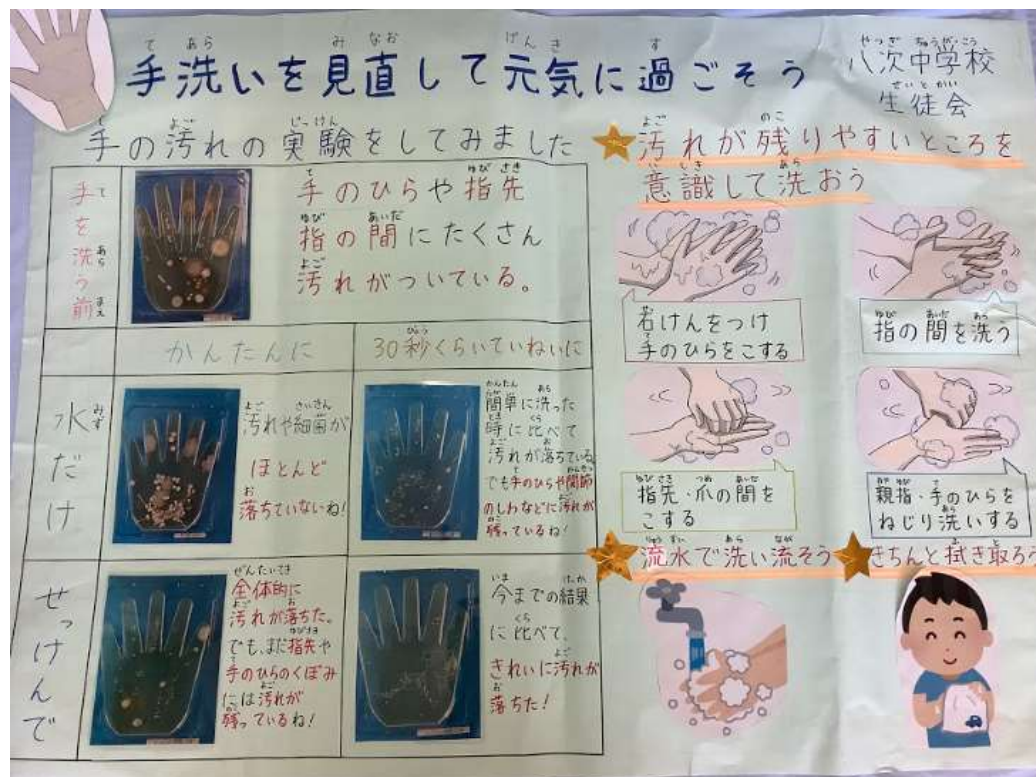 手洗いを見直して元気に過ごそう
八次中学校
生徒会
手の汚れの実験をしてみました
手を洗う前
手のひらや指先
指の間にたくさん
汚れがついている。
かんたんに
30秒くらいていねいに
水だけ
汚れや細菌が
ほとんど
落ちていないね!
簡単に洗った
時に比べて
汚れが落ちている。
でも手のひらや関節
のしわなどに汚れが
残っているね!
せっけんで
全体的に
汚れが落ちた。
でも、まだ指先や
手のひらのくぼみ
には汚れが
残っているね!
今までの結果
に比べて、
きれいに汚れが
落ちた!
汚れが残りやすいところを
意識して洗おう
石けんをつけ
手のひらをこする
指の間を洗う
指先・爪の間を
こする
親指・手のひらを
ねじり洗いする
流水で洗い流そう
きちんと拭き取ろう